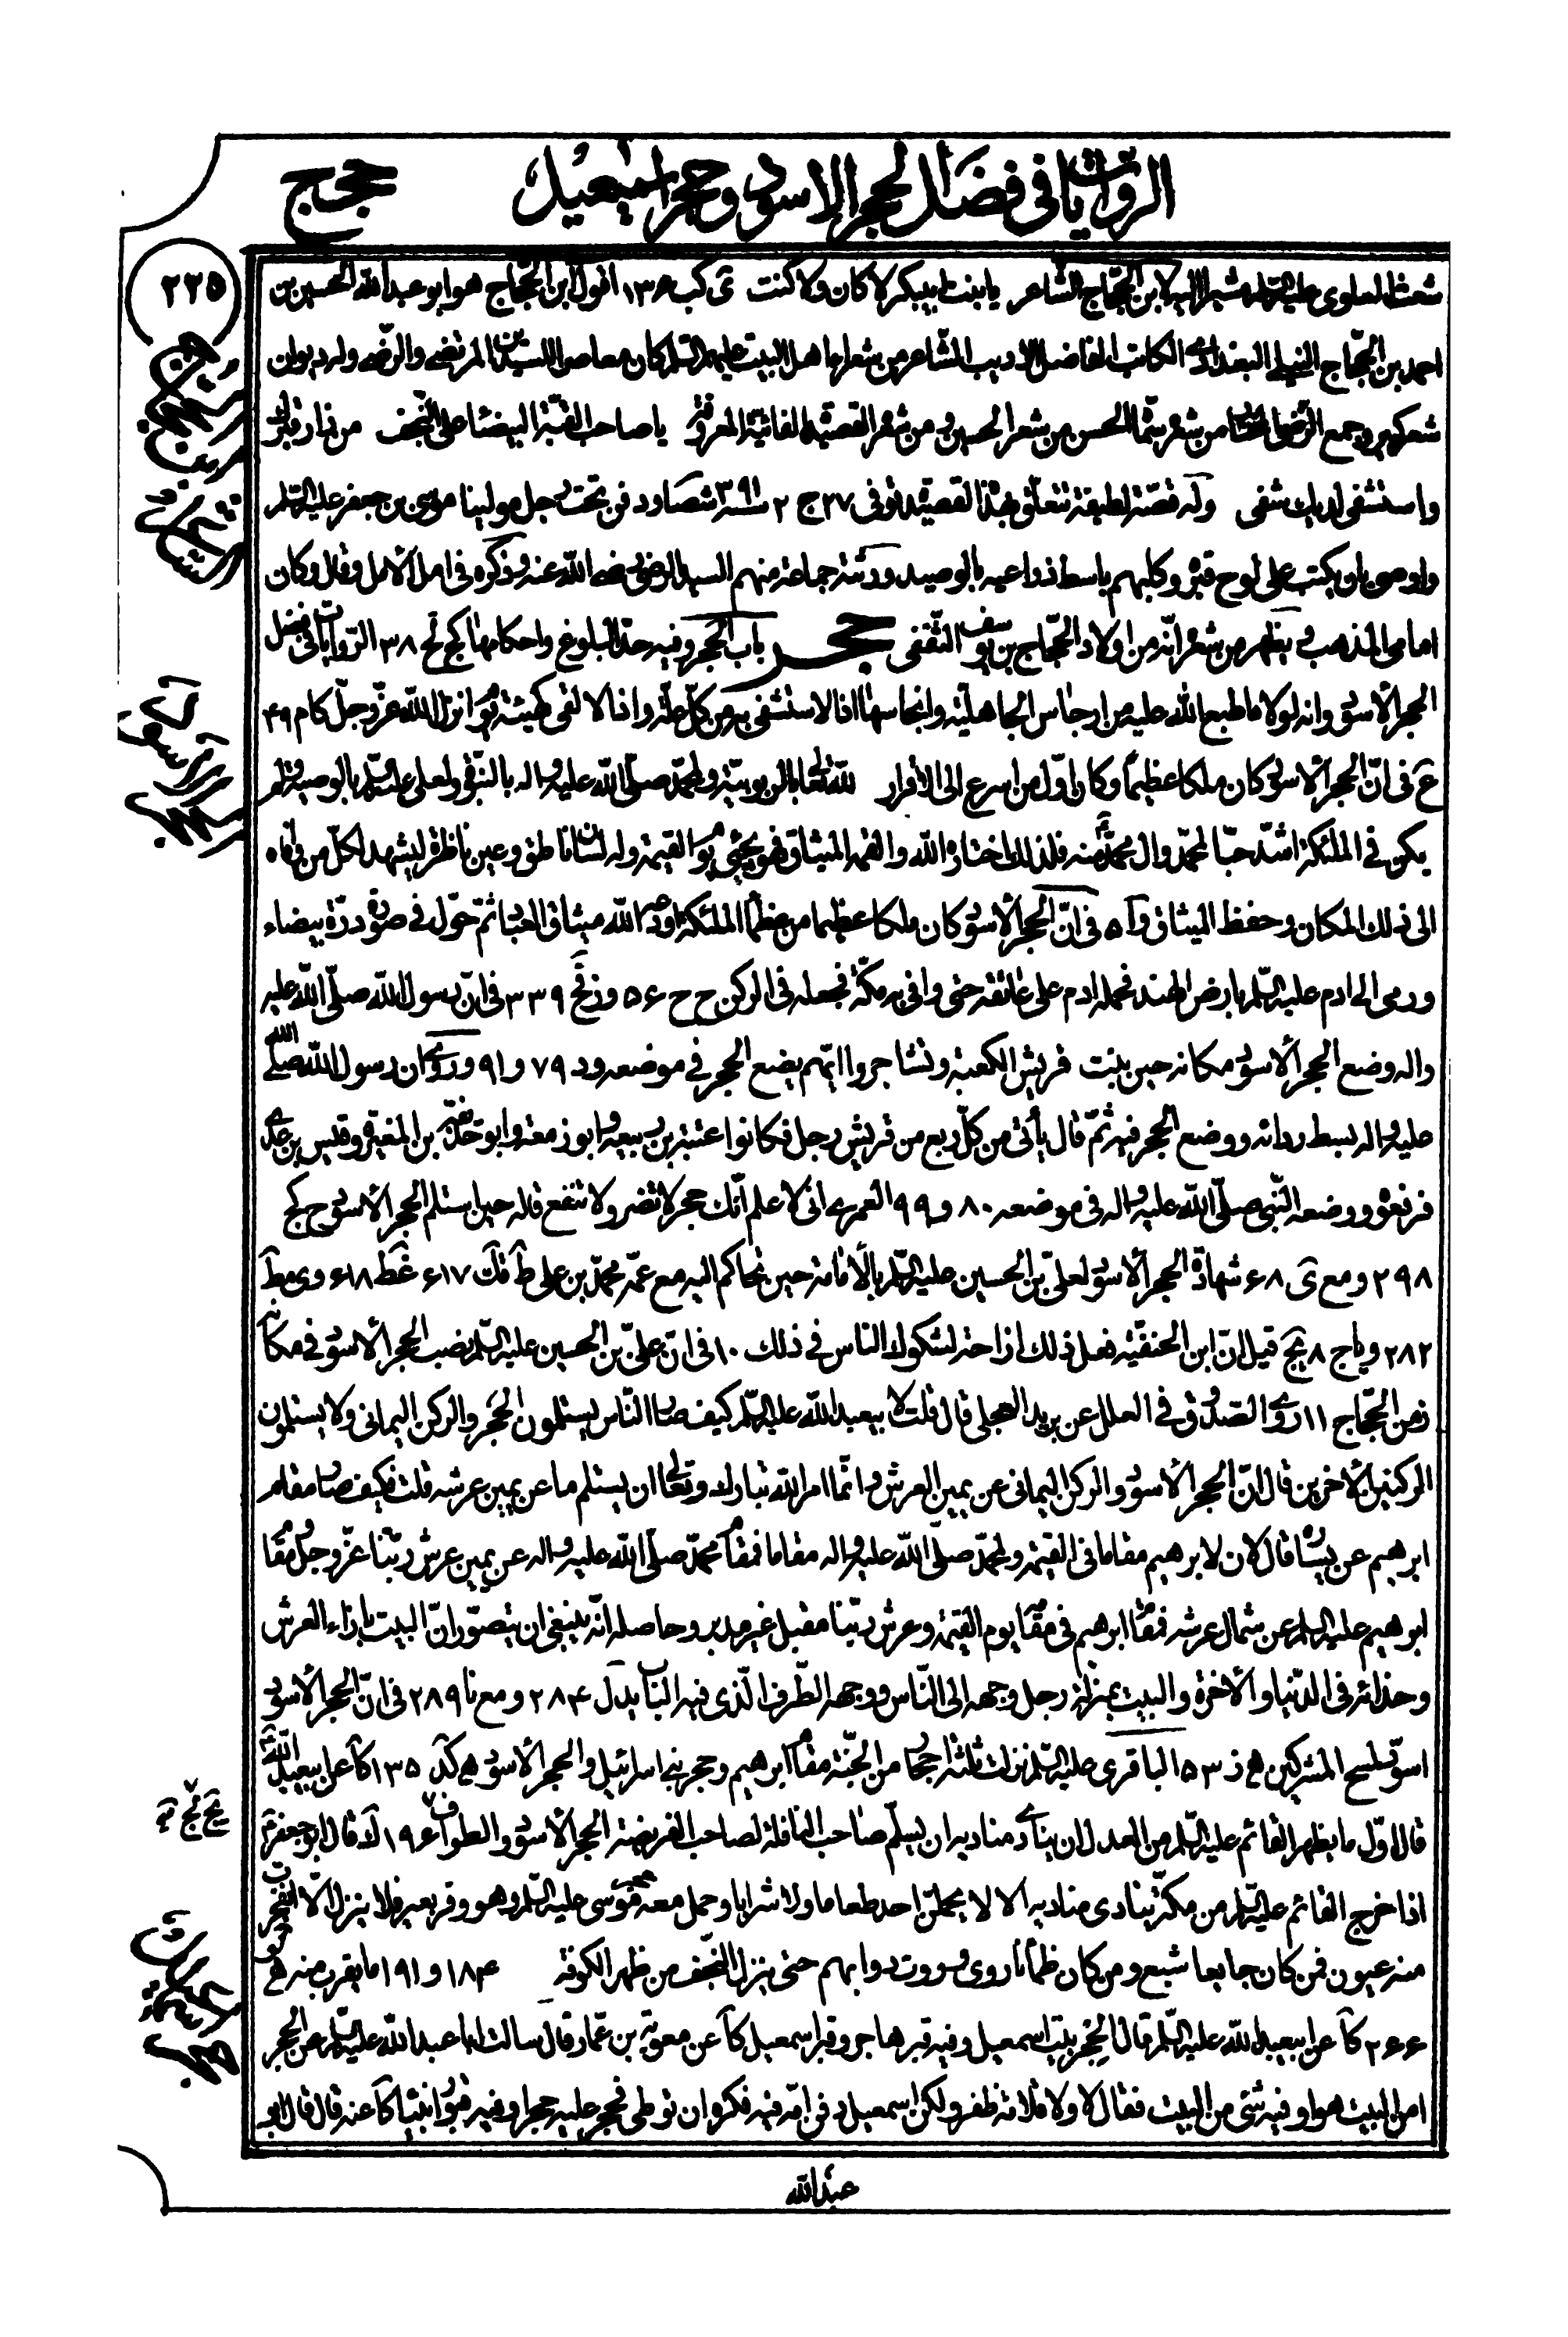 الروايات في فضل الحجر الاسود وحجر اسمعيل
حجج
٢٢٥
العلوي عليه السلم مشيرا اليه لابن الحجاج الشاعر يا بنت لا كان ولا كنت ى كب ١٣٨ اقول ابن الحجاج هو ابو عبد الله الحسين بن
احمد بن الحجاج النيلي البغدادي الكاتب الفاضل الاديب الشاعر من شعراء اهل البيت عليهم السلم كان معاصرا للسيدين المرتضى والرضي وله ديوان
شعر كبير وجمع الرضي من شعره سماه الحسن من شعر الحسين ومن شعره القصيدة الفائية المعروفة يا صاحب القبة البيضاء على النجف من زار قبرك
واستشفى لديك شفي وله قصة لطيفة تتعلق بهذه القصيدة توفي ٢٧ ج ٢ سنة ٣٩١ شصا ودفن تحت رجل مولينا موسى بن جعفر عليه السلم
واوصى بان يكتب على لوح قبره وكلبهم باسط ذراعيه بالوصيد ورثته جماعة منهم السيد الرضي رضي الله عنه وذكره في امل الآمل وقال وكان
امامي المذهب ويظهر من شعره انه من اولاد الحجاج بن يوسف الثقفي حجر باب الحجر وفيه حد البلوغ واحكامها كج لح ٣٨ الروايات في فضل
الحجر الاسود وانه لولا ما طبع الله عليه من ارجاس الجاهلية وانجاسها اذا لاستشفي به من كل علة واذا لالفي كهيئته يوم انزل الله عز وجل كام ٤٩
ع في ان الحجر الاسود كان ملكا عظيما وكان اول من اسرع الى الاقرار لله تعالى بالربوبية ولمحمد صلى الله عليه واله بالنبوة ولعلي عليه السلم بالوصية ولم
يكن في الملئكة اشد حبا لمحمد وال محمد منه فلذلك اختاره الله والقمه الميثاق فهو يجيء يوم القيمة وله لسان ناطق وعين ناظرة ليشهد لكل من وافاه
الى ذلك المكان وحفظ الميثاق وآ ٥ في ان الحجر الاسود كان ملكا عظيما من عظماء الملئكة اودعه الله ميثاق العباد ثم حول في صورة درة بيضاء
ورمى الى ادم عليه السلم بارض الهند فحمله ادم على عاتقه حتى وافى به مكة فجعله في الركن ح ح ٥٦ وز لح ٣٣٩ في ان رسول الله صلى الله عليه
واله وضع الحجر الاسود مكانه حين بنت قريش الكعبة وتشاجروا ايهم يضع الحجر في موضعه ود ٧٩ و ٩١ وروي ان رسول الله صلى الله
عليه واله بسط ردائه ووضع الحجر فيه ثم قال يأتي من كل ربع من قريش رجل فكانوا عتبة بن ربيعة وابو زمعة وابو حذيفة بن المغيرة وقيس بن عدي
فرفعوه ووضعه النبي صلى الله عليه واله في موضعه ٨٠ و ٩٩ العمري اني لاعلم انك حجر لا تضر ولا تنفع قاله حين استلم الحجر الاسود ح كج
٢٩٨ ومع ى ٦٨ شهادة الحجر الاسود لعلي بن الحسين عليه السلم بالامامة حين تحاكم اليه مع عمه محمد بن علي ط قك ٦١٧ غط ٦١٨ وى مط
٢٨٢ ويا ج ٨ يج قيل ان ابن الحنفية فعل ذلك ازاحة لشكوك الناس في ذلك ١٠ في ان علي بن الحسين عليه السلم نصب الحجر الاسود في مكانه
زمن الحجاج ١١ روى الصدوق في العلل عن بريد العجلي قال قلت لابيعبد الله عليه السلم كيف صار الناس يستلمون الحجر والركن اليماني ولا يستلمون
الركنين الاخرين قال ان الحجر الاسود والركن اليماني عن يمين العرش وانما امر الله تبارك وتعالى ان يستلم ما عن يمين عرشه قلت فكيف صار مقام
ابرهيم عن يساره قال لان لابرهيم مقاما في القيمة ولمحمد صلى الله عليه واله مقاما فمقام محمد صلى الله عليه واله عن يمين عرش ربنا عز وجل ومقام
ابرهيم عليه السلم عن شمال عرشه فمقام ابرهيم في مقامه يوم القيمة وعرش ربنا مقبل غير مدبر وحاصله انه ينبغي ان يتصور ان البيت بازاء العرش
وحذائه في الدنيا والاخرة والبيت بمنزلة رجل وجهه الى الناس ووجهه الطرف الذي فيه الباب يد ل ٢٨٤ ومع نا ٢٨٩ في ان الحجر الاسود
اسود لمسح المشركين هـ ز ٥٣ الباقري عليه السلم نزلت ثلثة احجار من الجنة مقام ابرهيم وحجر بني اسرائيل والحجر الاسود هـ كد ١٣٥ كا عن ابيعبد الله
قال اول ما يظهر القائم عليه السلم من العدل ان ينادي مناديه ان يسلم صاحب النافلة لصاحب الفريضة الحجر الاسود والطواف ١٩٦ لا قال ابو جعفر
اذا خرج القائم عليه السلم من مكة ينادي مناديه الا لا يحملن احد طعاما ولا شرابا وحمل معه حجر موسى عليه السلم وهو وقر بعير فلا ينزل الا انفجرت
منه عيون فمن كان جايعا شبع ومن كان ظمآنا روى ورويت دوابهم حتى ينزل النجف من ظهر الكوفة ١٨٤ و ١٩١ ما يقرب منه هـ
٢٦٦ كا عن ابيعبد الله عليه السلم قال الحجر بيت اسمعيل وفيه قبر هاجر وقبر اسمعيل كا عن معوية بن عمار قال سالت ابا عبد الله عليه السلم عن الحجر
امن البيت هو او فيه شيء من البيت فقال لا ولا قلامة ظفر ولكن اسمعيل دفن امه فيه فكره ان توطى فحجر عليه حجرا وفيه قبور انبياء كا عنه قال قال ابو
عبد الله